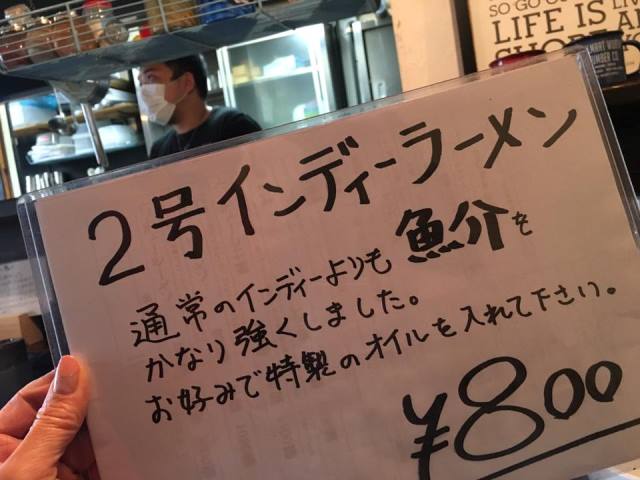 SO GO O
LIFE IS
2号インディーラーメン
通常のインディーよりも 魚介を
かなり強くしました。
お好みで特製のオイルを入れて下さい。
¥800